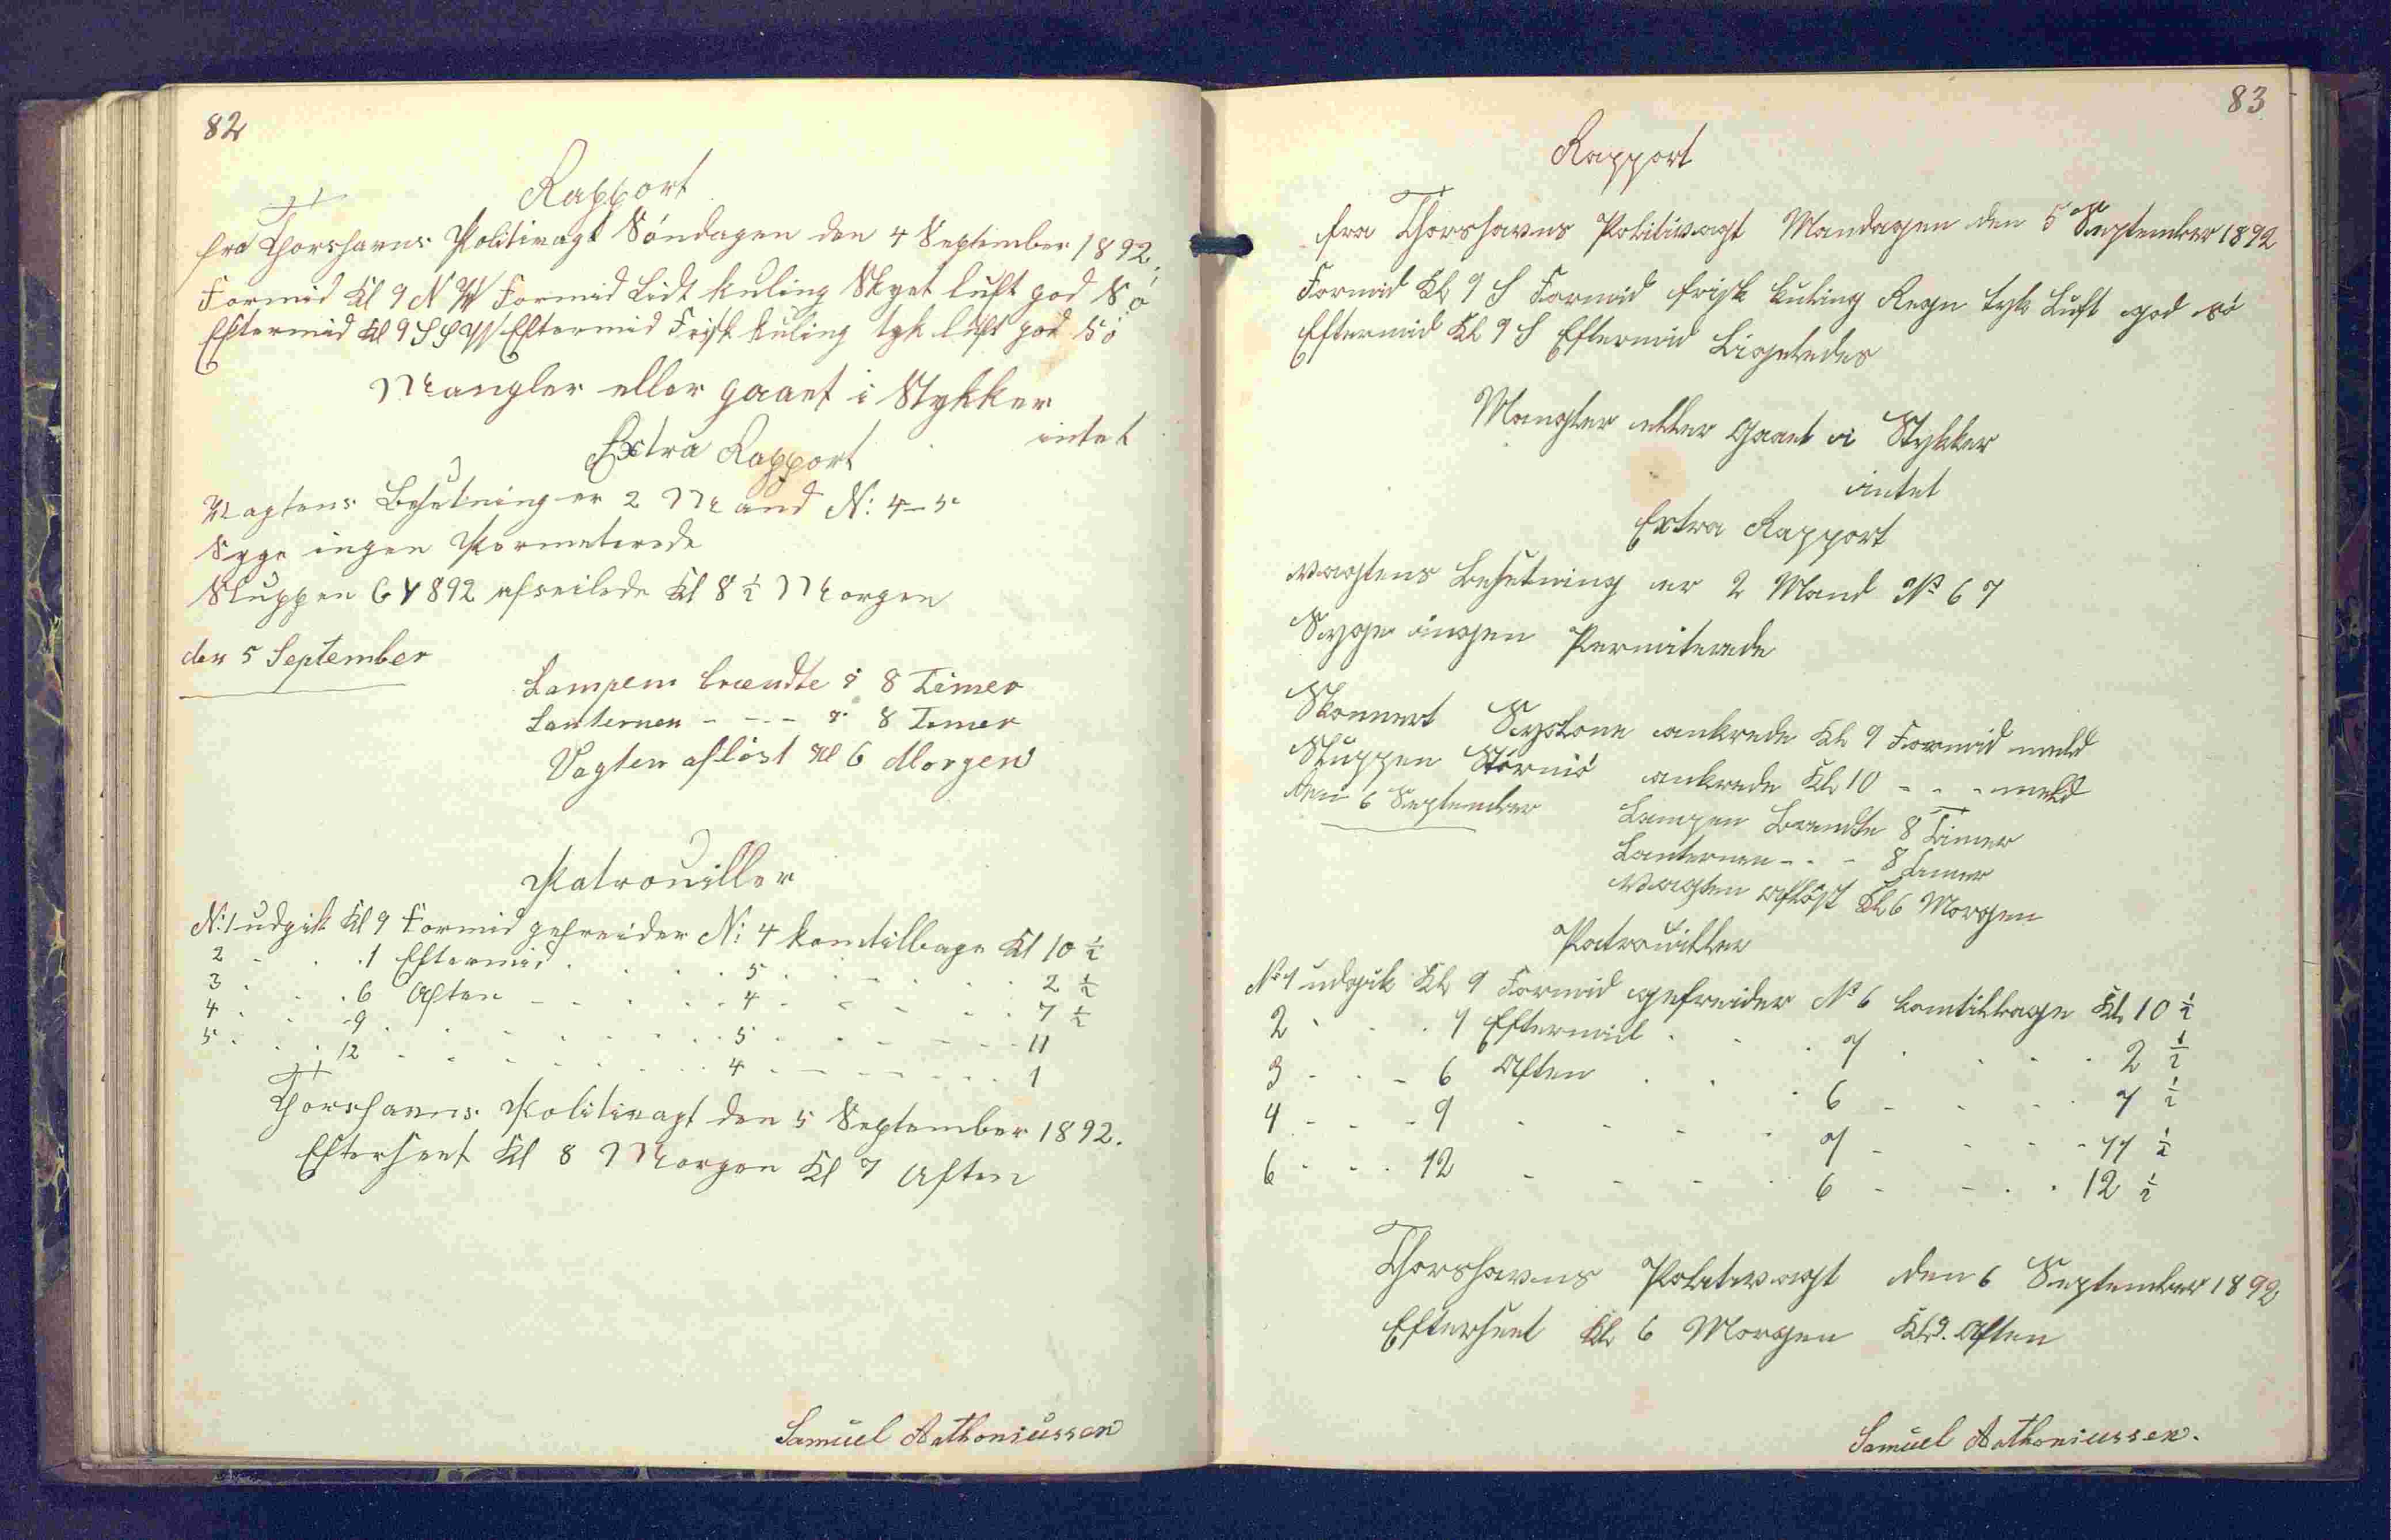 82
Rapport
fra Thorshavns Politivagt Söndagen den 4 September 1892.
Formid Kl 9 N W Formid Lidt kuling Skyet luft god Sö
Eftermid Kl 9 S S W Eftermid Frisk kuling tyk luft god Sö
Mangler eller gaaet i Stykker
intet
Extra Rapport
Vagtens Besetning er 2 Mand N: 4-5
Syge ingen Permeterede
Sluppen 892 afseilede Kl 8 1/2 Morgen
den 5 September
Lampen brændte i 8 Timer
Lanternen - - - i 8 Timer
Vagten aflöst Kl 6 Morgen
Patrouiller
N: 1 udgik Kl 9 Formid gefreider N: 4 komtilbage Kl 10 1/2
2 - . . 1 Eftermid . . . . 5 . . - . . . 2 1/2
3 . . . 6 Aften - - . . . 4 - - - . . . 7 1/2
4 . . . 9 . . - . . . . 5 . . - - - - 11
5 . . . 12 . . - . . . . 4 . - - - - . . 1
Thorshavns Politivagt den 5 September 1892.
Efterseet Kl 8 Morgen Kl 7 Aften
Samuel Anthoniussen
83
Rapport
fra Thorshavns Politivagt Mandagen den 5 September 1892
Formid Kl 9 S Formid frisk kuling Regn tyk Luft god sö
Eftermid Kl 9 S Eftermid Ligeledes
Mangler eller Gaaet i Stykker
intet
Extra Rapport
vagtens Besetning er 2 Mand No 6 7
Syge ingen Permiterede
Skonnert ankrede Kl 9 Formid meld
Sluppen Störniö ankrede Kl 10 - - - meld
den 6 September
Lampen Brændte 8 Timer
Lanternen - . - 8 Timer
vagten aflöst Kl 6 Morgen
Patrouiller
No 1 udgik Kl 9 Formid gefreider No 6 komtilbage Kl 10 1/2
2 - . . 1 Eftermid . . . 7 . . . . 2 1/2
3 - . - 6 Aften . . . 6 - . - . 7 1/2
4 - - - 9 - - - - 7 - . - - 11 1/2
6 - - . 12 - - - . 6 - - . . 12 1/2
Thorshavns Politivagt den 6 September 1892
Efterseet Kl 6 Morgen Kl 9. Aften
Samuel Anthoniussen.